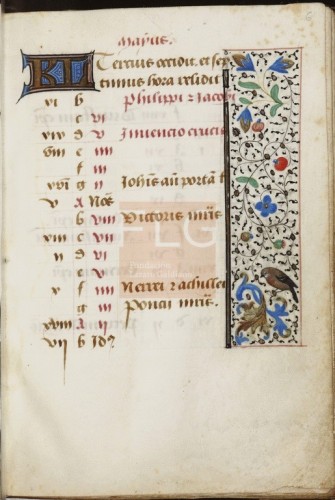 Mayus.
KL Tercius occidit. et sep
timus hora relidit
vi b Philippi z Jacobi
c vi
xiv d v Invencio crucis
e iiii
f iii
g ii Johis an portā l
v A Noñ
b viii Victoris mris
xiii c vii
ii d vi
e v
x f iiii Nerrei z achillei
g iii Poncii mris.
xviii A ii
vii b Idꝰ
FLG